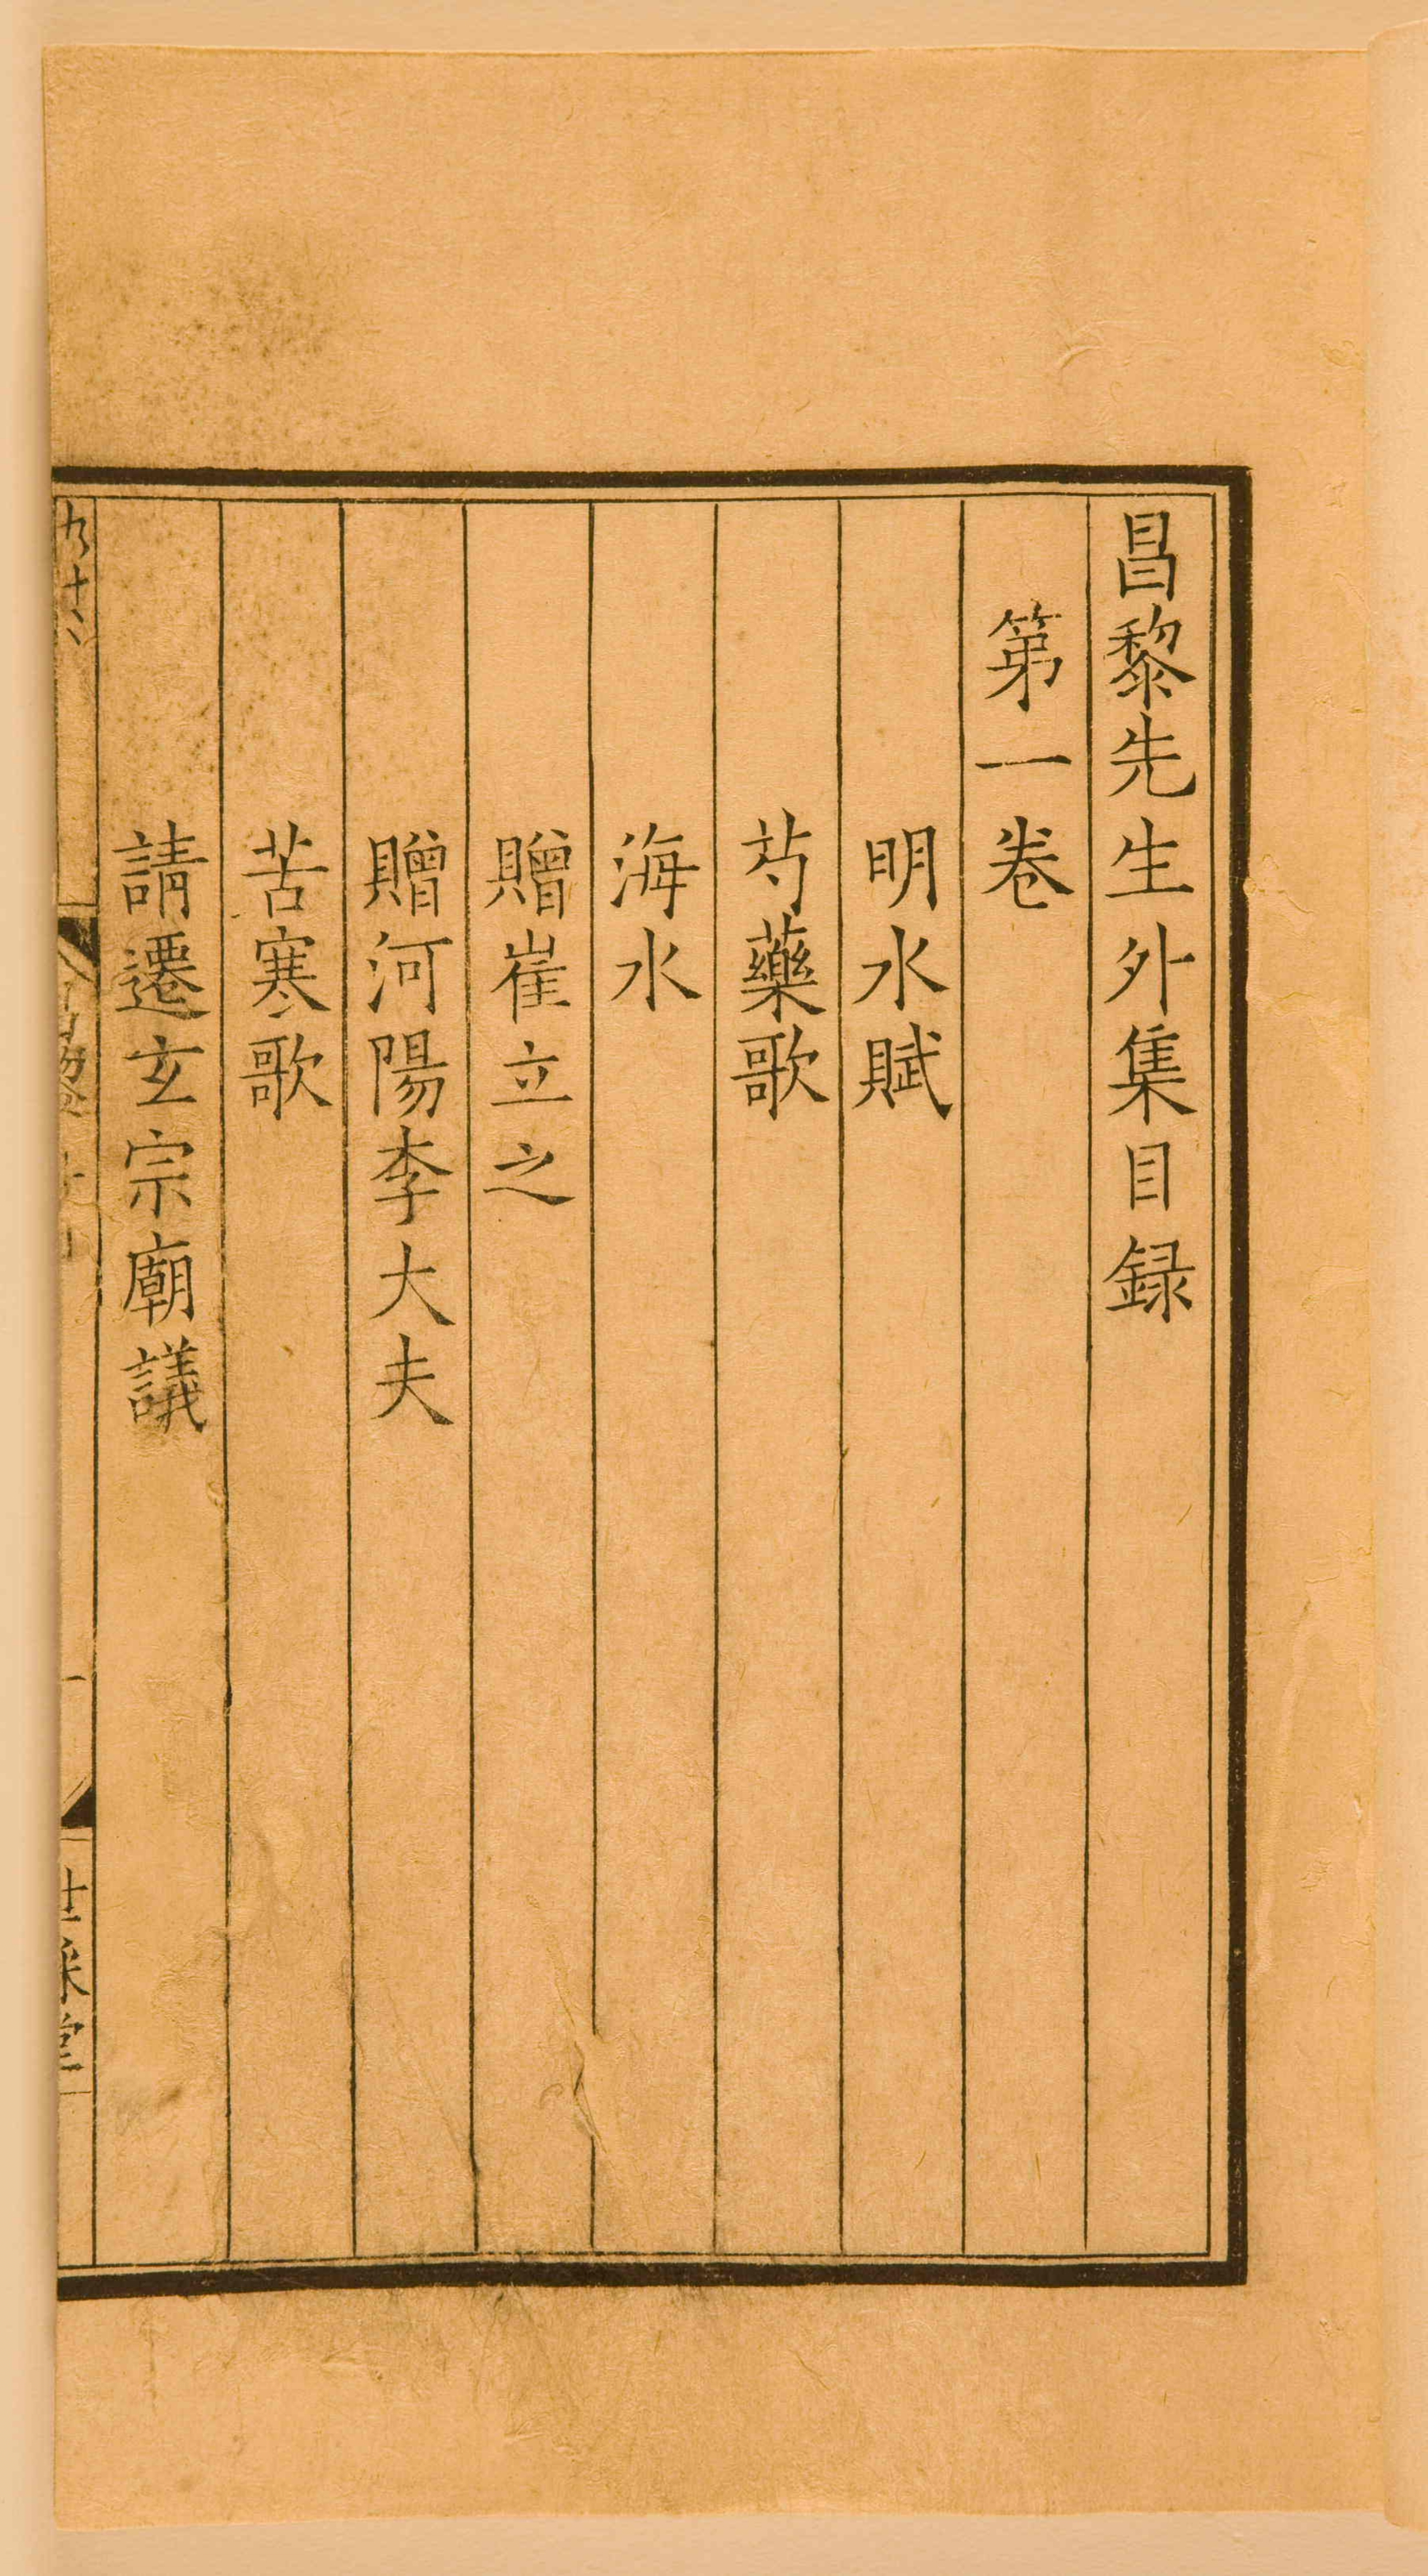 昌黎先生外集目録
第一卷
明水賦
芍藥歌
海水
贈崔立之
贈河陽李大夫
苦寒歌
請遷玄宗廟議